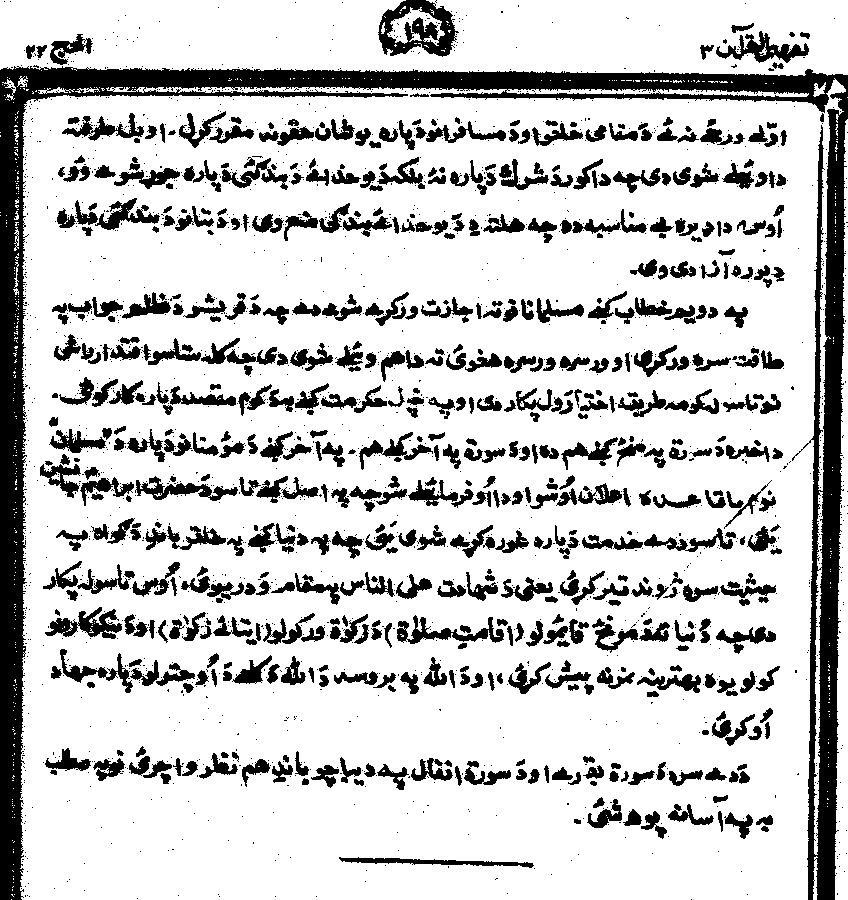 تفهیم القرآن ۳
۱۹۸
الحج ۲۲
اوّلے ورځے نہ ئے دَ مقامی خلقو او دَ مسافرانو دَپارہ یو شان حقونہ مقرر کړل ۔ او بل طرفتہ
دا وئیلے شوی دی چہ دا کور دَ شرک دَپارہ نہ بلکہ دَ یو خدائے دَ بندګئ دَ پارہ جوړ شوے وو،
اُوسہ دا ډیرہ بے مناسبہ دہ چہ هلتہ دِ دَ یو خدائے بندګی منع وی او دَ بتانو دَ بندګئ دَپارہ
دِ پورہ آزادی وی۔
پہ دویم خطاب کښے مسلمانانو تہ اجازت ورکړے شوے دے چہ دَ قریشو دَ ظلم جواب پہ
طاقت سرہ ورکړی او ورسرہ ورسرہ هغوئ تہ دا هم وئیلے شوی دی چہ کلہ ستاسو اقتدار راشی
نو تاسو لہ کومہ طریقہ اختیارول پکار دی او پہ خپل حکومت کښے بہ دَ کوم مقصد دَپارہ کار کوئ۔
دا خبرہ دَ سورة پہ مینځ کښے هم دہ او دَ سورة پہ آخر کښے هم ۔ پہ آخر کښے دَ مؤمنانو دَپارہ دَ "مسلمان"
نوم باقاعدہ اعلان اُوشو او دا اُوفرمائیلے شو چہ پہ اصل کښے تاسو دَ حضرت ابراهیم جانشین
یئ، تاسو دے خدمت دَپارہ غورہ کړے شوی یئ چہ پہ دنیا کښے پہ خلقو باندِ دَ ګواہ پہ
حیثیت سرہ ژوند تیر کړئ یعنی دَ شهادت علی الناس پہ مقام ودریږئ، اُوس تاسو لہ پکار
دی چہ دُنیا تہ دَ مونځ قایمولو (اقامتِ صلوٰة) دَ زکوٰة ورکولو (ایتائے زکوٰة) او دَ نیکو کارونو
کولو یوہ بهترینہ نمونہ پیش کړئ، او دَ اللہ پہ بروسہ دَ اللہ دَ کلمے دَ اُوچتولو دَپارہ جهاد
اُوکړئ۔
دَدے سرہ دَ سورة بقرے او دَ سورة انفال پہ دیباچو باندِ هم نظر واچوئ نو پہ مطلب
بہ پہ آسانہ پوهہ شئ ۔